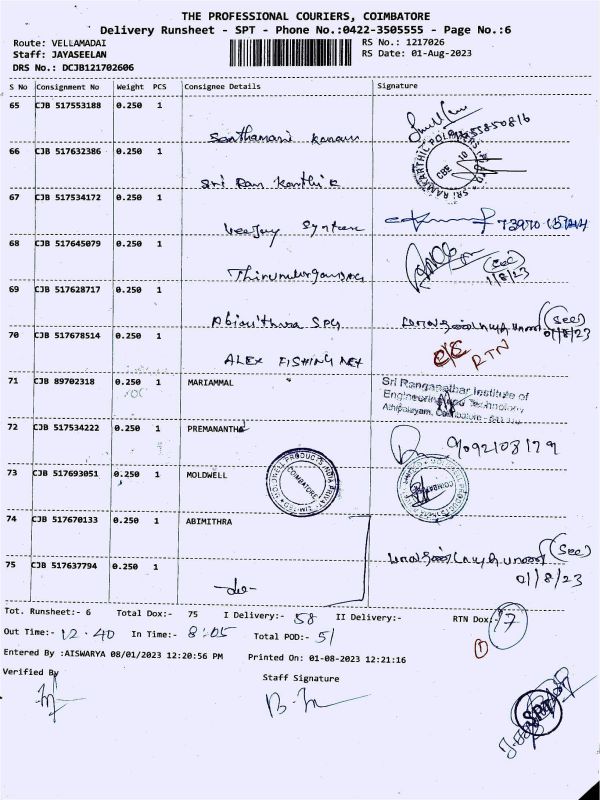 THE PROFESSIONAL COURIERS, COIMBATORE
Delivery Runsheet - SPT - Phone No.:0422-3505555 - Page No.:6
Route: VELLAMADAI RS No.: 1217026
Staff: JAYASEELAN RS Date: 01-Aug-2023
DRS No.: DCJB121702606
S No Consignment No Weight PCS Consignee Details Signature
65 CJB 517553188 0.250 1
Santhamani
66 CJB 517632386 0.250 1
Sri Ram Karthik
67 CJB 517534172 0.250 1
Veejay System
68 CJB 517645079 0.250 1
1/8/23
69 CJB 517628717 0.250 1
(See)
01/8/23
70 CJB 517678514 0.250 1
ALEX FISHING NET RTN
71 CJB 89702318 0.250 1 MARIAMMAL
Sri Ranganathar Institute of
Engineering and Technology
Athipalayam, Coimbatore
72 CJB 517534222 0.250 1 PREMANANTH
9092108179
73 CJB 517693051 0.250 1 MOLDWELL
MOLDWELL PRODUCTS INDIA COIMBATORE
74 CJB 517670133 0.250 1 ABIMITHRA
75 CJB 517637794 0.250 1
-do-
(See)
01/8/23
Tot. Runsheet:- 6 Total Dox:- 75 I Delivery:- 58 II Delivery:- RTN Dox:- 17
Out Time:- 12.40 In Time:- 8:05 Total POD:- 51
Entered By :AISWARYA 08/01/2023 12:20:56 PM Printed On: 01-08-2023 12:21:16
Verified By Staff Signature